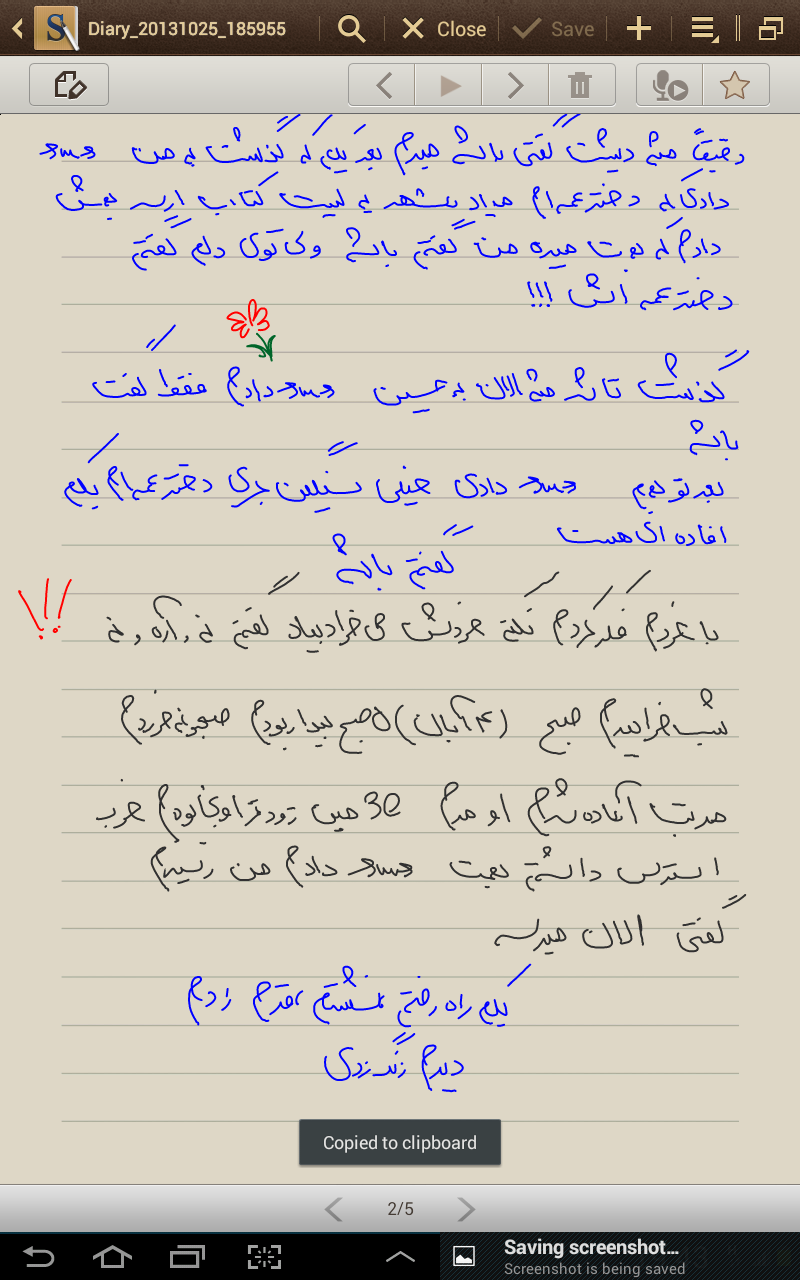 Diary_20131025_185955
Close
Save
دقیقاً مثه دیست گفتی باشه میرم بعد یه که گذشت به من sms
دادی که دخترعمه ام میاد بشهر یه لیست کتاب بهش
دادم که بوت میره من گفتم باشه وی توی دلم گفتم
دخترعمه اش !!!
گذشت تا شد مثه الان به حسین sms دادم فقط گفت
باشه
بعد تو بهم sms دادی خیلی سنگین جری دخترعمه ام یکم
افاده ای هست
گفتم باشه
!!!
با خودم فکر کردم نکنه خودش می خواد بیاد گفتم نه , آره , نه
شب خوابیدم صبح (۴ آبان) ۵ صبح بیدار بودم صبحونه خوردم
مرتب آماده شدم او مدم 30 مین زودتر اونجا بودم خوب
استرس داشتم بهت sms دادم من رسیدم
گفتی الان میرسه
یکم راه رفتم نشستم قدم زدم
دیدم زنگ زدی
Copied to clipboard
2/5
Saving screenshot...
Screenshot is being saved